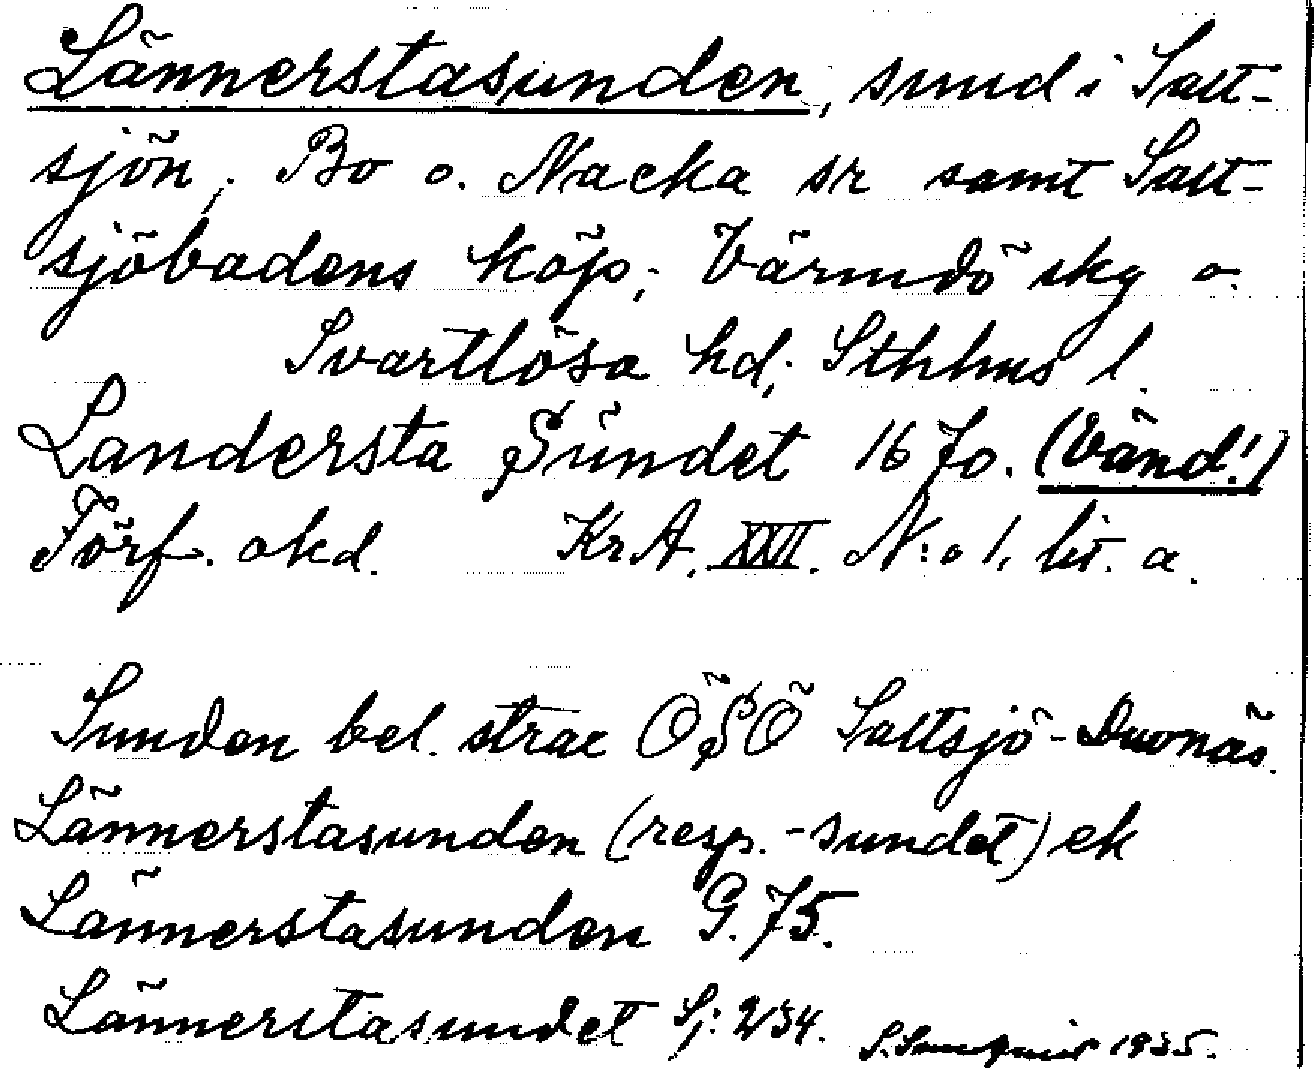 Lännerstasunden, sund i Salt-
sjön; Bo o. Nacka sr samt Salt-
sjöbadens köp; Värmdö skg o.
Svartlösa hd; Sthlms l.
Landersta Sundet 1670. (Vänd!)
Förf. okd. KrA. XXII. N:o 1. lit. a.
Sunden bel. strax ÖSÖ Saltsjö-Duvnäs.
Lännerstasunden (resp. -sundet) ek
Lännerstasunden G. 75.
Lännerstasundet Sj: 234.
1935.